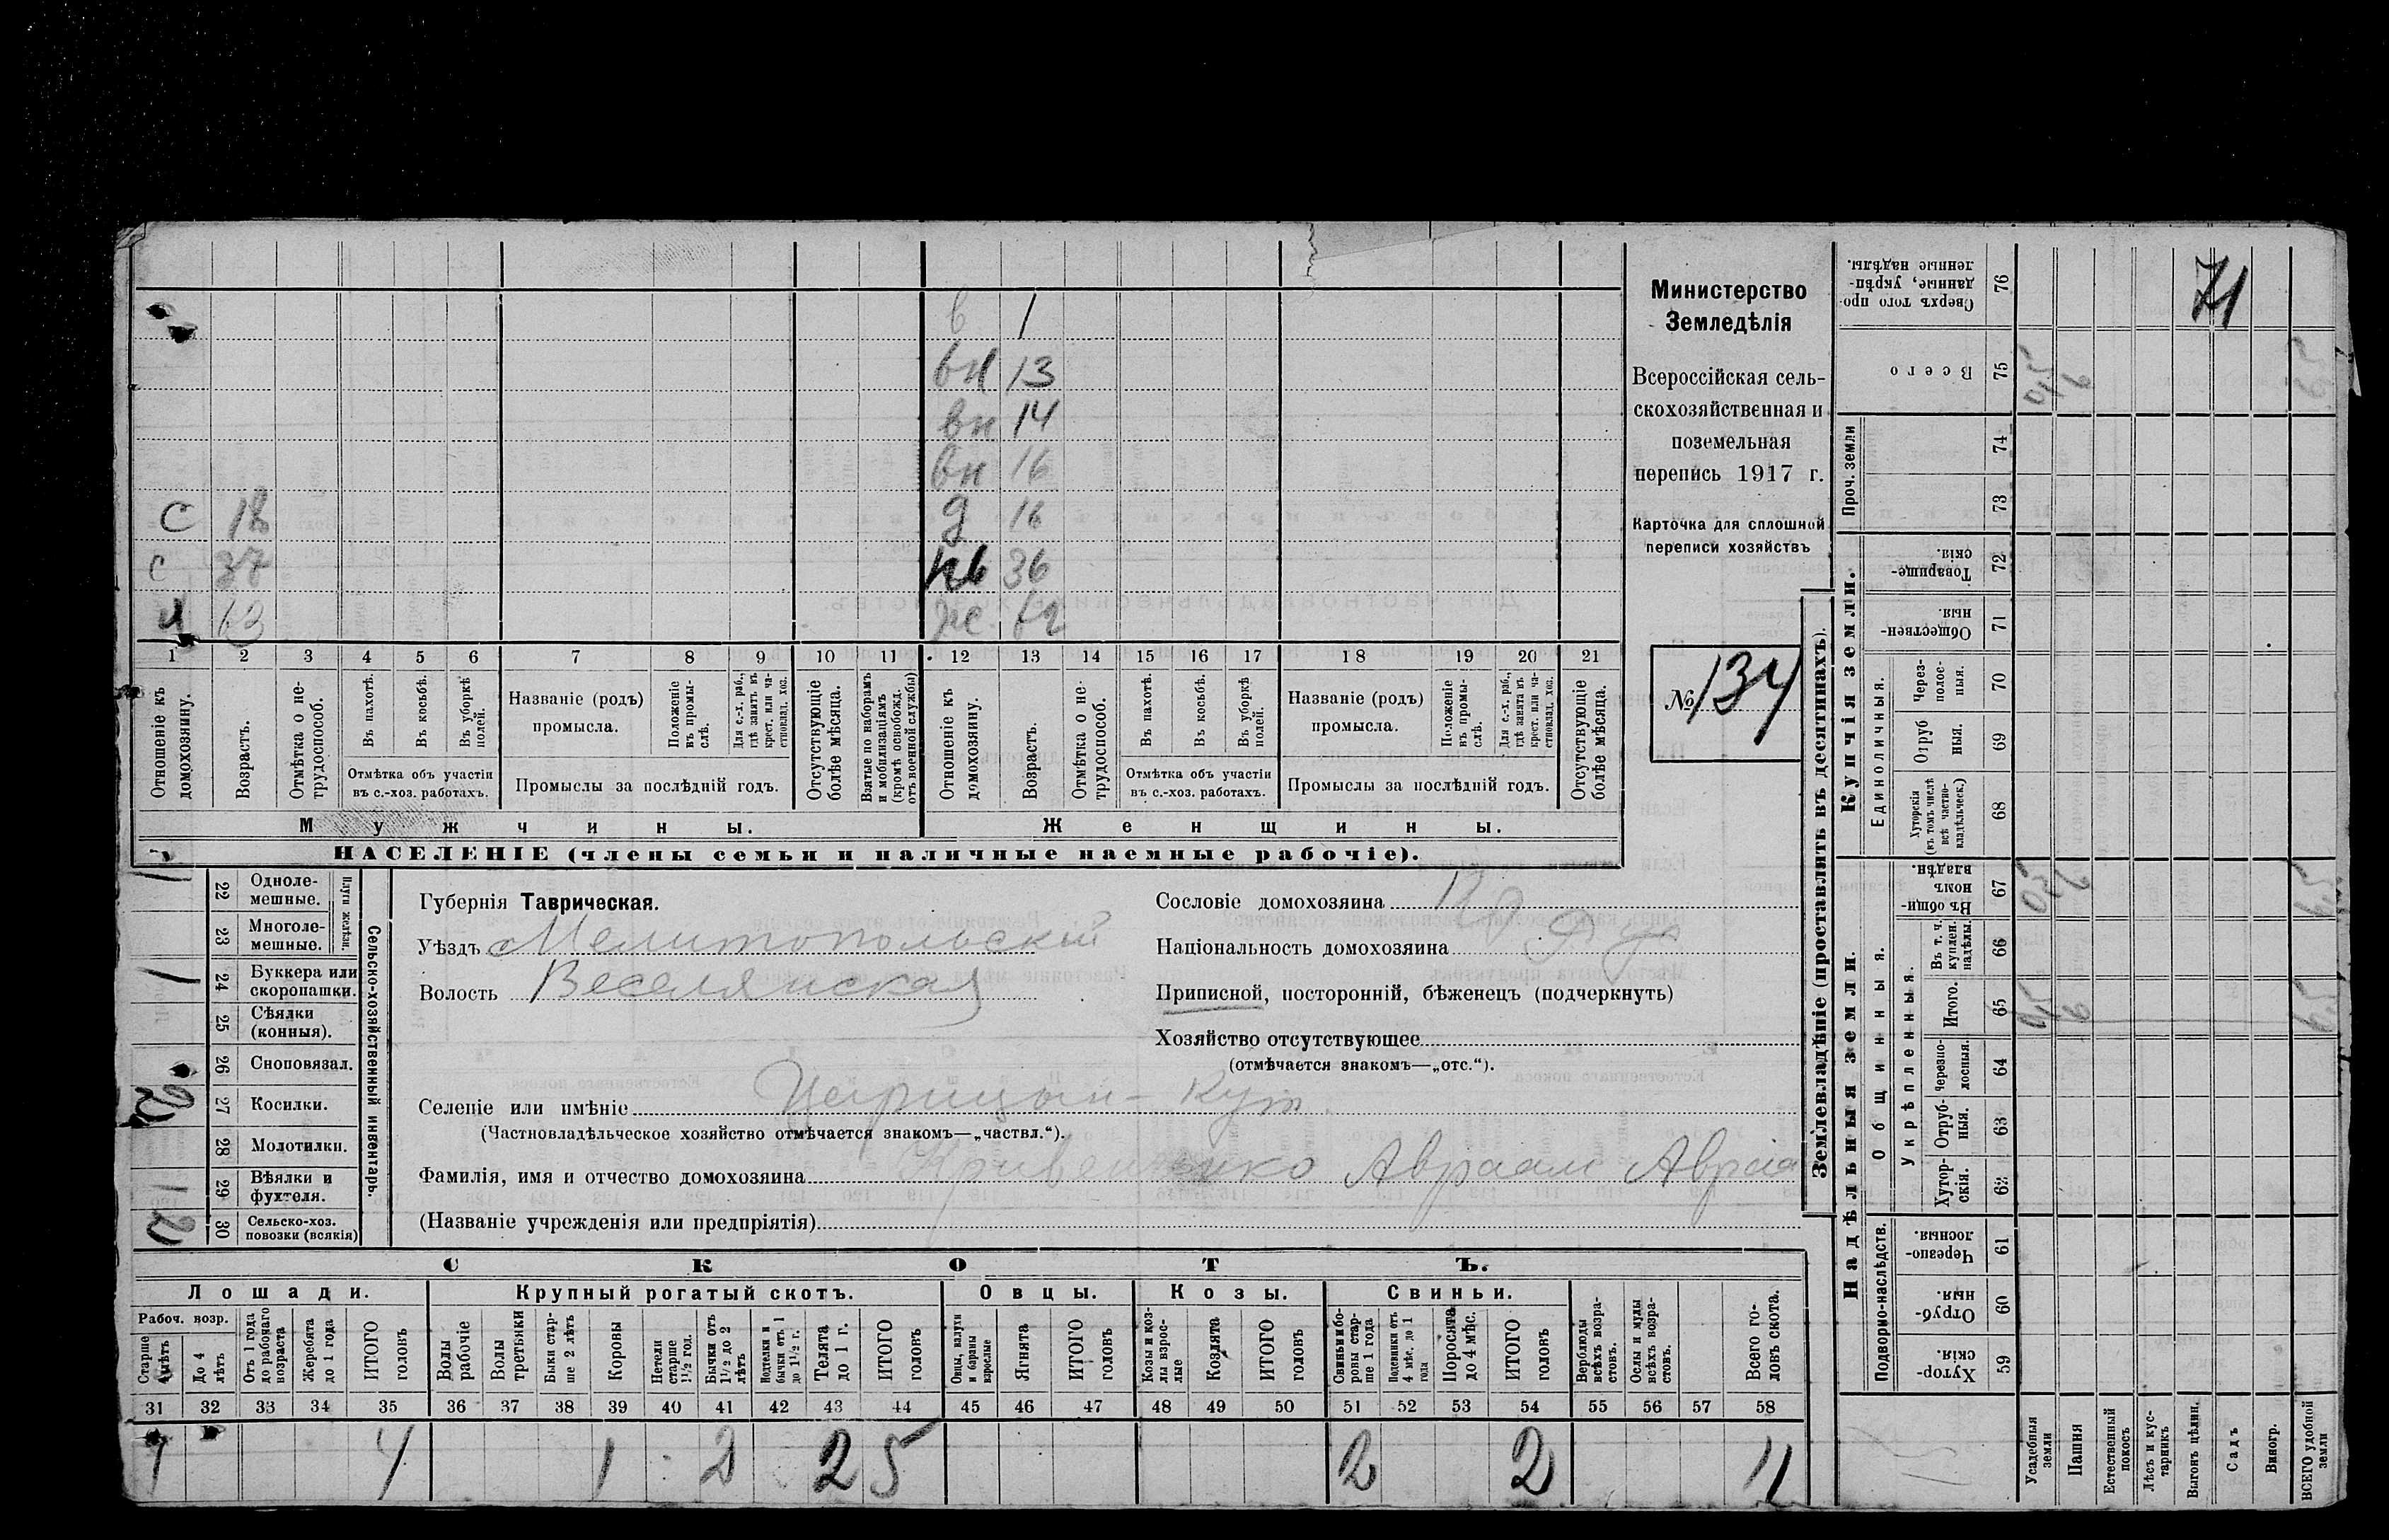 в 1
вн 13
вн 14
вн 16
с 18 д 16
с 37 нв 36
63 ж
1 2 3 4 5 6 7 8 9 10 11 12 13 14 15 16 17 18 19 20 21
Отношеніе къ домохозяину.
Возрастъ.
Отмѣтка о не-трудоспособ.
Въ пахотѣ.
Въ косьбѣ.
Въ уборкѣ полей.
Отмѣтка объ участіи
въ с.-хоз. работахъ.
Названіе (родъ)
промысла.
Положеніе въ промы-слѣ.
Для с.-х. раб., гдѣ занятъ въ крест. или ча-стновлад. хоз.
Промыслы за послѣдній годъ.
Отсутствующіе болѣе мѣсяца.
Взятые по наборамъ и мобилизаціямъ (кромѣ освобожд. отъ военной службы)
Отношеніе къ домохозяину.
Возрастъ.
Отмѣтка о не-трудоспособ.
Въ пахотѣ.
Въ косьбѣ.
Въ уборкѣ полей.
Отмѣтка объ участіи
въ с.-хоз. работахъ.
Названіе (родъ)
промысла.
Положеніе въ промы-слѣ.
Для с.-х. раб., гдѣ занята въ крест. или ча-стновлад. хоз.
Промыслы за послѣдній годъ.
Отсутствующіе болѣе мѣсяца.
Мужчины.
Женщины.
НАСЕЛЕНІЕ (члены семьи и наличные наемные рабочіе).
Министерство
Земледѣлія
Всероссійская сель-
скохозяйственная и
поземельная
перепись 1917 г.
Карточка для сплошной
переписи хозяйствъ
№ 134
22 Одноле-мешные.
23 Многоле-мешные.
Плуги желѣзн.
24 Буккера или скоропашки.
25 Сѣялки (конныя).
26 Сноповязал.
27 Косилки.
28 Молотилки.
29 Вѣялки и фухтеля.
30 Сельско-хоз. повозки (всякія)
Сельско-хозяйственный инвентарь.
Губернія Таврическая.
Уѣздъ Мелитопольскій
Волость Веселянская
Сословіе домохозяина
Національность домохозяина
Приписной, посторонній, бѣженецъ (подчеркнуть)
Хозяйство отсутствующее
(отмѣчается знакомъ—„отс.“).
Селеніе или имѣніе Царицын-Кут
(Частновладѣльческое хозяйство отмѣчается знакомъ—„частвл.“).
Фамилія, имя и отчество домохозяина Авраам Авраа
(Названіе учрежденія или предпріятія)
СКОТЪ.
Лошади.
Крупный рогатый скотъ.
Овцы.
Козы.
Свиньи.
Рабоч. возр.
Старше 4 лѣтъ
До 4 лѣтъ
Отъ 1 года до рабочаго возраста
Жеребята до 1 года
ИТОГО головъ
Волы рабочіе
Волы третьяки
Быки стар-ше 2 лѣтъ
Коровы
Нетели старше 1½ год.
Бычки отъ 1½ до 2 лѣтъ
Нетелки и бычки отъ 1 до 1½ г.
Телята до 1 г.
ИТОГО головъ
Овцы, валухи и бараны взрослые
Ягнята
ИТОГО головъ
Козы и коз-лы взрос-лые
Козлята
ИТОГО головъ
Свиньи и бо-ровы стар-ше 1 года
Подсвинки отъ 4 мѣс. до 1 года
Поросята до 4 мѣс.
ИТОГО головъ
Верблюды всѣхъ возра-стовъ.
Ослы и мулы всѣхъ возра-стовъ.
Всего го-ловъ скота.
31 32 33 34 35 36 37 38 39 40 41 42 43 44 45 46 47 48 49 50 51 52 53 54 55 56 57 58
4 1 2 2 5 2 2 11
Землевладѣніе (проставлять въ десятинахъ).
Купчія земли.
Надѣльныя земли.
Проч. земли
Единоличныя.
Общинныя.
Укрѣпленныя.
Подворно-наслѣдств.
76 Сверхъ того про-данные, укрѣп-ленные надѣлы.
71
75 Всего
74
73
72 Товарище-скія.
71 Обществен-ныя.
70 Через-полос-ныя.
69 Отруб ныя.
68 Хуторскія (въ томъ числѣ всѣ частно-владѣльческ.)
67 Въ общин-номъ владѣн.
66 Въ т. ч. куплен. надѣлы.
65 Итого.
64 Черезпо-лосныя.
63 Отруб-ныя.
62 Хутор-скія.
61 Черезпо-лосныя.
60 Отруб-ныя.
59 Хутор-скія.
Усадебныя земли
Пашня
Естественный покосъ
Лѣсъ и кус-тарникъ
Выгонъ цѣлин.
Садъ
Виногр.
ВСЕГО удобной земли